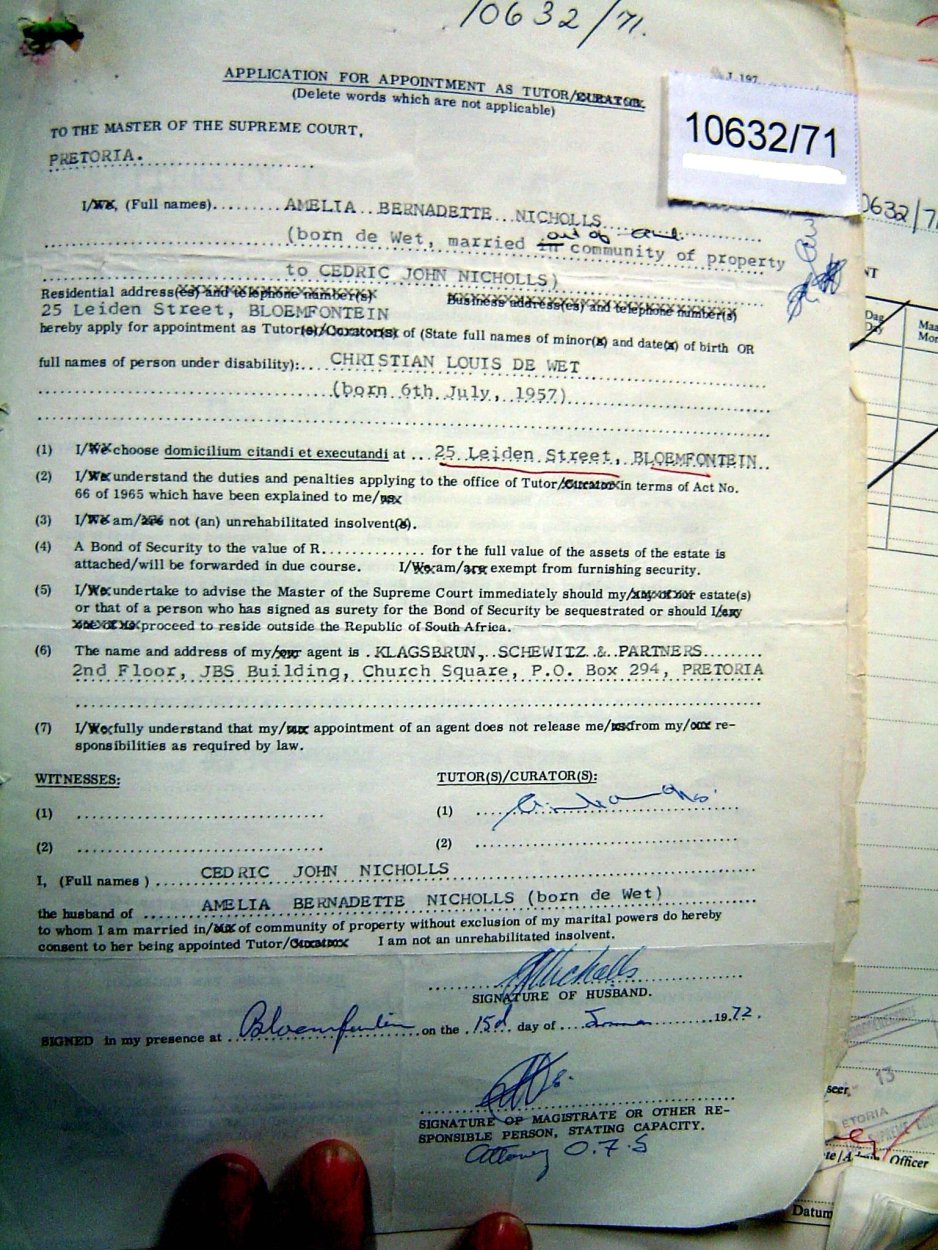 10632/71.
J.197
APPLICATION FOR APPOINTMENT AS TUTOR/CURATOR
(Delete words which are not applicable)
10632/71
TO THE MASTER OF THE SUPREME COURT,
PRETORIA.
I/WE, (Full names) AMELIA BERNADETTE NICHOLLS
0632/7
out of
(born de Wet, married in community of property
to CEDRIC JOHN NICHOLLS)
NT
Residential address(es) and telephone number(s) Business address(es) and telephone number(s)
25 Leiden Street, BLOEMFONTEIN
hereby apply for appointment as Tutor(s)/Curator(s) of (State full names of minor(s) and date(s) of birth OR
Dag
Day
Maa
Mor
full names of person under disability): CHRISTIAN LOUIS DE WET
(born 6th July, 1957)
(1) I/We choose domicilium citandi et executandi at 25 Leiden Street, BLOEMFONTEIN
(2) I/We understand the duties and penalties applying to the office of Tutor/Curator in terms of Act No.
66 of 1965 which have been explained to me/us
(3) I/We am/are not (an) unrehabilitated insolvent(s).
(4) A Bond of Security to the value of R. for the full value of the assets of the estate is
attached/will be forwarded in due course. I/We am/are exempt from furnishing security.
(5) I/We undertake to advise the Master of the Supreme Court immediately should my/any of our estate(s)
or that of a person who has signed as surety for the Bond of Security be sequestrated or should I/any
one of us proceed to reside outside the Republic of South Africa.
(6) The name and address of my/our agent is KLAGSBRUN, SCHEWITZ & PARTNERS
2nd Floor, JBS Building, Church Square, P.O. Box 294, PRETORIA
(7) I/We fully understand that my/our appointment of an agent does not release me/us from my/our re-
sponsibilities as required by law.
WITNESSES: TUTOR(S)/CURATOR(S):
(1) (1)
(2) (2)
I, (Full names ) CEDRIC JOHN NICHOLLS
the husband of AMELIA BERNADETTE NICHOLLS (born de Wet)
to whom I am married in/out of community of property without exclusion of my marital powers do hereby
consent to her being appointed Tutor/Curator I am not an unrehabilitated insolvent.
Nicholls
SIGNATURE OF HUSBAND.
SIGNED in my presence at Bloemfontein on the 15d day of 1972.
SIGNATURE OF MAGISTRATE OR OTHER RE-
SPONSIBLE PERSON, STATING CAPACITY.
Attorney O.F.S
seer,
13
ETORIA
Officer
Datum